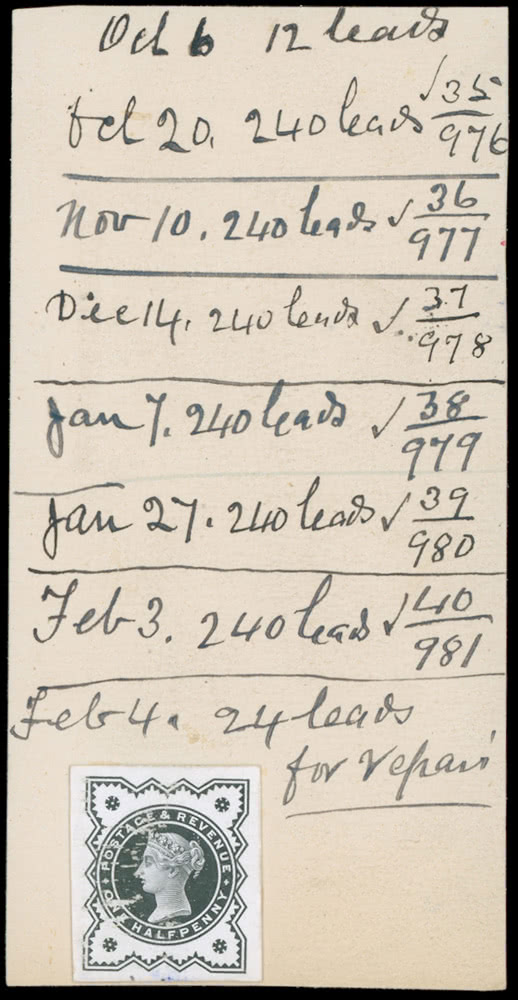 Oct 6 12 leads
Oct 20. 240 leads √ 35/976
Nov 10. 240 leads √ 36/977
Dec 14. 240 leads √ 37/978
Jan 7. 240 leads √ 38/979
Jan 27. 240 leads √ 39/980
Feb 3. 240 leads √ 40/981
Feb 4. 24 leads
for repair
POSTAGE & REVENUE
ONE HALFPENNY